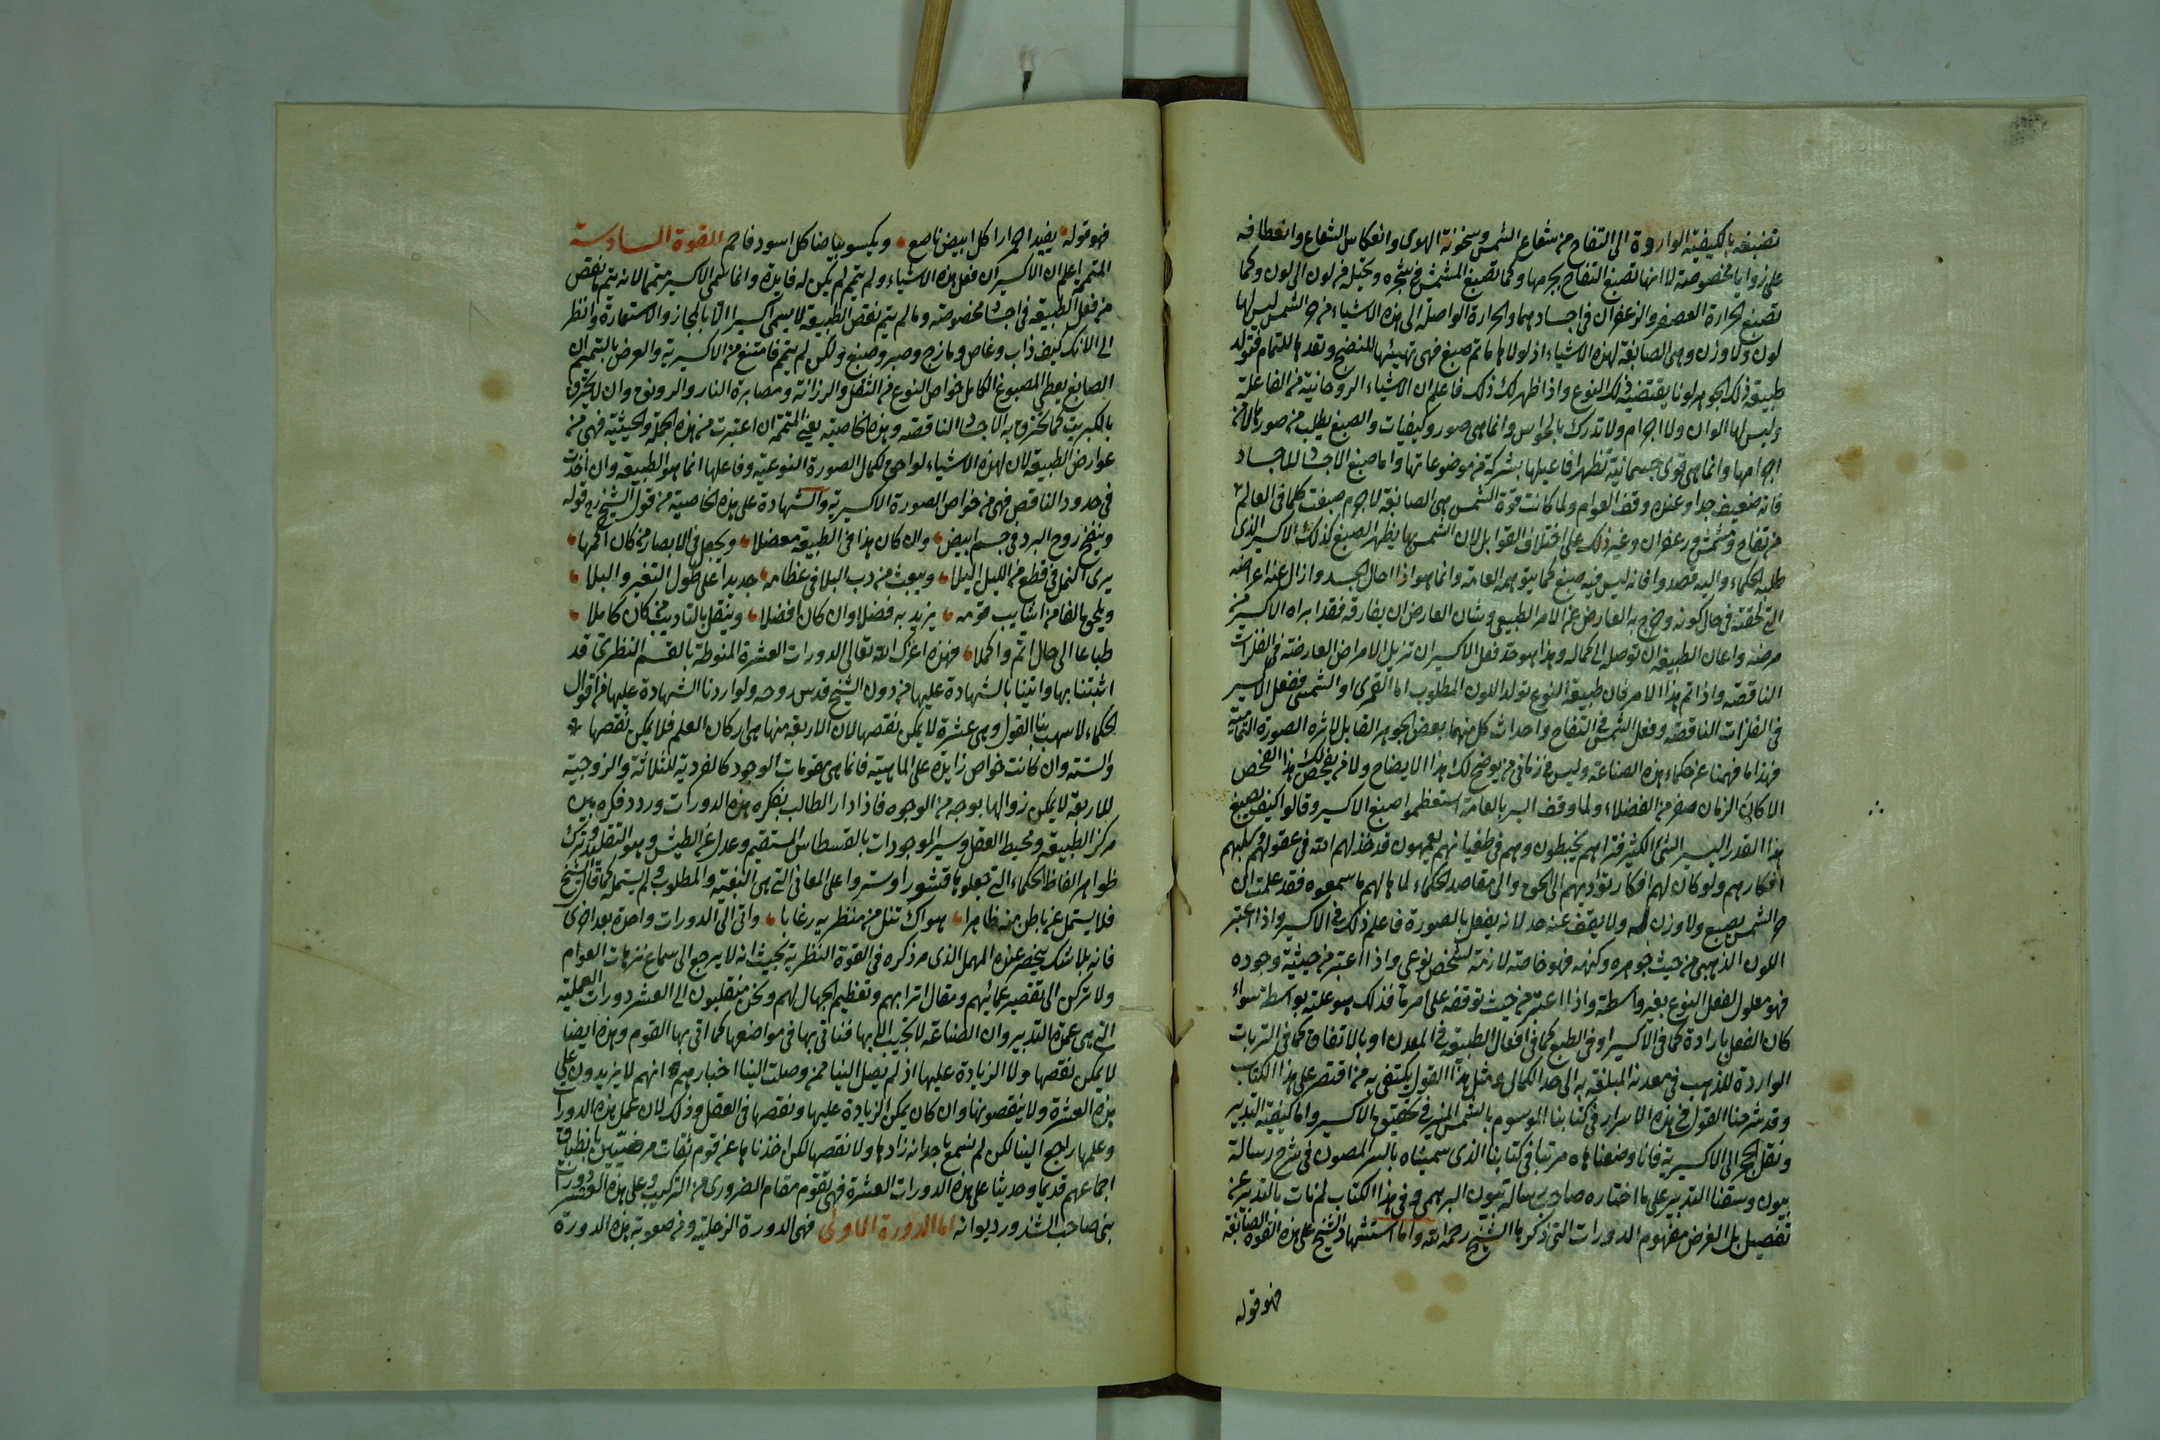 تصبغه بالكيفية الواردة الى التفاح من شعاع الشمس وسخونة الهوى وانعكاس الشعاع وانعطافه
على زوايا مخصوصة لا انها تصبغ التفاح بجرمها وكما تصبغ المشمش في شجره وتحيله من لون الى لون وكما
تصبغ الحرارة العصفر والزعفران في اجسادهما والحرارة الواصلة الى هذه الاشياء من حر الشمس ليس لها
لون ولا وزن وهى الصابغة لهذه الاشياء اذ لولاها ما تم صبغ فهى تهيئها للنضج وتعدها للتمام فتولد
طبيعة ذلك الجوهر لونا يقتضيه ذلك النوع واذا ظهر لك ذلك فاعلم ان الاشياء الروحانية من الفاعلة
وليس لها الوان ولا اجرام ولا تدرك بالحواس وانما هى صور وكيفيات والصبغ يطلب من صورها لا من
اجرامها وانما هى قوى جسمانية تظهر افاعيلها بشركة من موضوعاتها واما صبغ الاجساد للاجساد
فانه ضعيف جدا وعنده وقف العوام ولما كانت قوة الشمس هى الصابغة لا جرم صبغت كلما في العالم
من تفاح ومشمش وزعفران وغير ذلك على اختلاف القوابل لان الشمس بها يظهر الصبغ كذلك الاكسير الذى
طلبه الحكماء واليه قصدوا فانه ليس فيه صبغ كما يتوهمه العامة وانما هو اذا احال الجسد وازال عنه اعراضه
التى لحقته في حال كونه وخرج به العارض عن الامر الطبيعى وشان العارض ان يفارقه فقد ابراه الاكسير من
مرضه واعان الطبيعة ان توصله الى كماله وهذا هو حد فعل الاكسير ان تزيل الامراض العارضة في الفلزات
الناقصة واذا تم هذا الامر فان طبيعة النوع تولد اللون المطلوب اما القمرى او الشمسى ففعل الاكسير
في الفلزات الناقصة وفعل الشمس في التفاح واحداث كل منهما بعض الجوهر القابل لاثره الصورة التمامية
فهذا ما فهمنا عن حكماء هذه الصناعة وليس في زمانى من يوضح لك هذا الايضاح ولا من يفحص لك هذا الفحص
الا كان الزمان صفر من الفضلاء ولما وقف السير بالعامة استعظموا صبغ الاكسير وقالوا كيف يصبغ
هذا القدر اليسير الشئ الكثير فتراهم يخبطون وهم في طغيانهم يعمهون قد خذلهم الله في عقولهم وسلبهم
افكارهم ولو كان لهم افكار تؤديهم الى الحق والى مقاصد الحكماء لما هالهم ما سمعوه فقد علمت ان
حر الشمس يصبغ ولا وزن له ولا يقف عنه حد لانه يفعل بالصورة فاعلم ذلك في الاكسير واذا اعتبر
اللون الذهبى من حيث جوهره وكنهه فهو خاصة لازمة لشخص نوعى واذا اعتبر من حيثية وجوده
فهو معلول لفعل النوع بغير واسطة واذا اعتبر من حيث توقفه على امر ما فذلك هو علته بواسطة سواء
كان الفعل بارادة كما في الاكسير او في الطبع كما في افعال الطبيعة في المعدن او بالاتفاق كما في التربات
الواردة للذهب في معدنه المبلغة به الى حد الكمال وبمثل هذا القول يكتفى به من اقتصر على هذا الكتاب
وقد شرحنا القول في هذه الاسرار في كتابنا الموسوم بالشمس المنير في تحقيق الاكسير واما كيفية التدبير
ونقل الحجر الى الاكسيرية فانا وضعناها مرتبا في كتابنا الذى سميناه بالسر المصون في شرح رسالة
بيون وسقنا التدبير على ما اختاره صاحب رسالة بيون البرهمى وفي هذا الكتاب لم نات بالتدبير عن
تفصيل بل الغرض مفهوم الدورات التى ذكرها الشيخ رحمه الله واما استشهاد الشيخ على هذه القوة الصابغة
فهو قوله
فهو قوله يفيد احمرارا كل ابيض ناصع ويكسو بياضا كل اسود فاحم القوة السادسة
المتممة اعلم ان الاكسير ان فعل هذه الاشياء ولم يتمم لم يكن له فايدة وانما سمى الاكسير متمما لانه يتم ما نقص
من فعل الطبيعة في اجساد مخصوصة وما لم يتم نقص الطبيعة لا يسمى اكسيرا الا بالمجاز والاستعارة وانظر
الى الانك كيف ذاب وغاص ومازج وصبر وصبغ ولكن لم يتمم فامتنع من الاكسيرية والغرض بالتتميم ان
الصابغ يعطى المصبوغ الكامل خواص النوع من الثقل والرزانة ومصابرة النار والرونق وان لا يحترق
بالكبريت كما تحترق به الاجساد الناقصة وهذه الخاصية يعنى المتممة ان اعتبرت من هذه الجملة والحيثية فهى من
عوارض الطبيعة لان لهذه الاشياء لواحق لكمال الصورة النوعية وفاعلها انما هو الطبيعة وان اخذت
في حدود الناقص فهى من خواص الصورة الاكسيرية والشهادة على هذه الخاصية من قول الشيخ ره قوله
وينفخ روح البرد في جسم ابيض وان كان هذا في الطبيعة معضلا ويجعل في الابصار من كان اكمها
يرى النمل في قطع من الليل اليلا ويبعث من دب البلا في عظامه جديدا على طول التغير والبلا
ويلحق بالقامز اشايب قومه يزيد به فضلا وان كان افضلا وينقل بالتاديب من كان كاملا
طباعا الى حال اتم واكملا فهذه اعزك الله تعالى الدورات العشرة المنوطة بالقسم النظرى قد
اثبتنا بها واتينا بالشهادة عليها من دون الشيخ قدس روحه ولو اردنا الشهادة عليها من اقوال
الحكماء لاسهب بنا القول وهى عشرة لا يمكن نقصها لان الاربعة منها هى اركان العلم فلا يمكن نقصها
والستة وان كانت خواص زايدة على الماهية فانما هى مقومات الوجود كالفردية للثلاثة والزوجية
للاربعة لا يمكن زوالها بوجه من الوجوه فاذا دار الطالب بفكره هذه الدورات وردد فكره بين
مركز الطبيعة ومحيط العقل وسير الموجودات بالقسطاس المستقيم وعدل عن الطيش وهو التقليد وترك
ظواهر الفاظ الحكماء التى جعلوها قشورا وستروا على المعانى التى هى البغية والمطلوب ولم يستمل كما قال الشيخ
فلا يستمل عن باطن منه ظاهرا هواك تنل من منظريه رغابا واتى الى الدورات واحدة بعد اخرى
فانه بلا شك يتحضر عنده المهمل الذى مر ذكره في القوة النظرية بحيث انه لا يرجع الى سماع ترهات العوام
ولا تركن الى تقصير علمائهم ومقال اترابهم وتعظيم الجهال لهم ونحن منقلبون الى العشر دورات العملية
التى هى عمدة التدبير وان الصناعة لا تجيب الا بها فناتى بها في مواضعها كما اتى بها القوم وهذه ايضا
لا يمكن نقصها ولا الزيادة عليها اذ لم يصل الينا ممن وصلت الينا اخبارهم انهم لا يزيدون على
هذه العشرة ولا ينقصونها وان كان يمكن الزيادة عليها ونقصها في العقل وذلك لان عمل هذه الدورات
وعلمها راجع الينا لكن لم نسمع باحد انه زادها ولا نقصها لكن اخذناها عن قوم ثقات مرضيين بانطباق
اجماعهم قديما وحديثا على هذه الدورات العشرة فهى تقوم مقام الضرورى من التركيب وعلى هذه العشر دورات
بنى صاحب الشذور ديوانه اما الدورة الاولى فهى الدورة الزحلية ومن صعوبة هذه الدورة